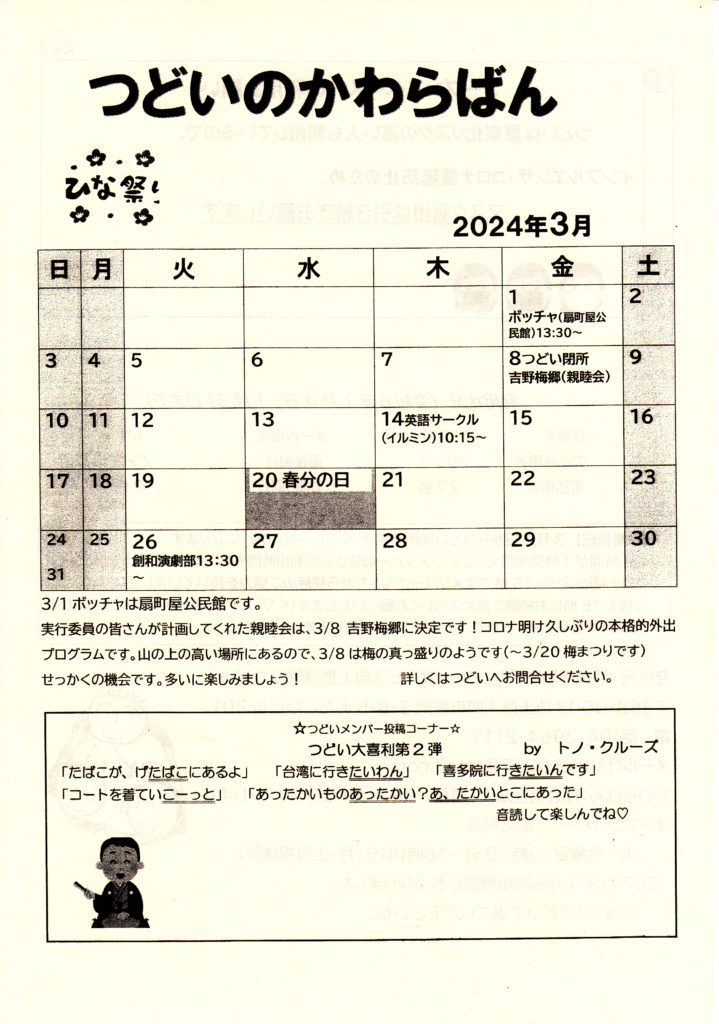 つどいのかわらばん
ひな祭り
2024年3月
日 月 火 水 木 金 土
1 2
ボッチャ(扇町屋公
民館)13:30～
3 4 5 6 7 8つどい閉所 9
吉野梅郷(親睦会)
10 11 12 13 14英語サークル 15 16
(イルミン)10:15～
17 18 19 20 春分の日 21 22 23
24 25 26 27 28 29 30
創和演劇部13:30
31 ～
3/1 ボッチャは扇町屋公民館です。
実行委員の皆さんが計画してくれた親睦会は、3/8 吉野梅郷に決定です！コロナ明け久しぶりの本格的外出
プログラムです。山の上の高い場所にあるので、3/8は梅の真っ盛りのようです(～3/20梅まつりです)
せっかくの機会です。多いに楽しみましょう！ 詳しくはつどいへお問合せください。
☆つどいメンバー投稿コーナー☆
つどい大喜利第2弾 by トノ・クルーズ
「たばこが、げたばこにあるよ」 「台湾に行きたいわん」 「喜多院に行きたいんです」
「コートを着ていこーっと」 「あったかいものあったかい？あ、たかいとこにあった」
音読して楽しんでね♡